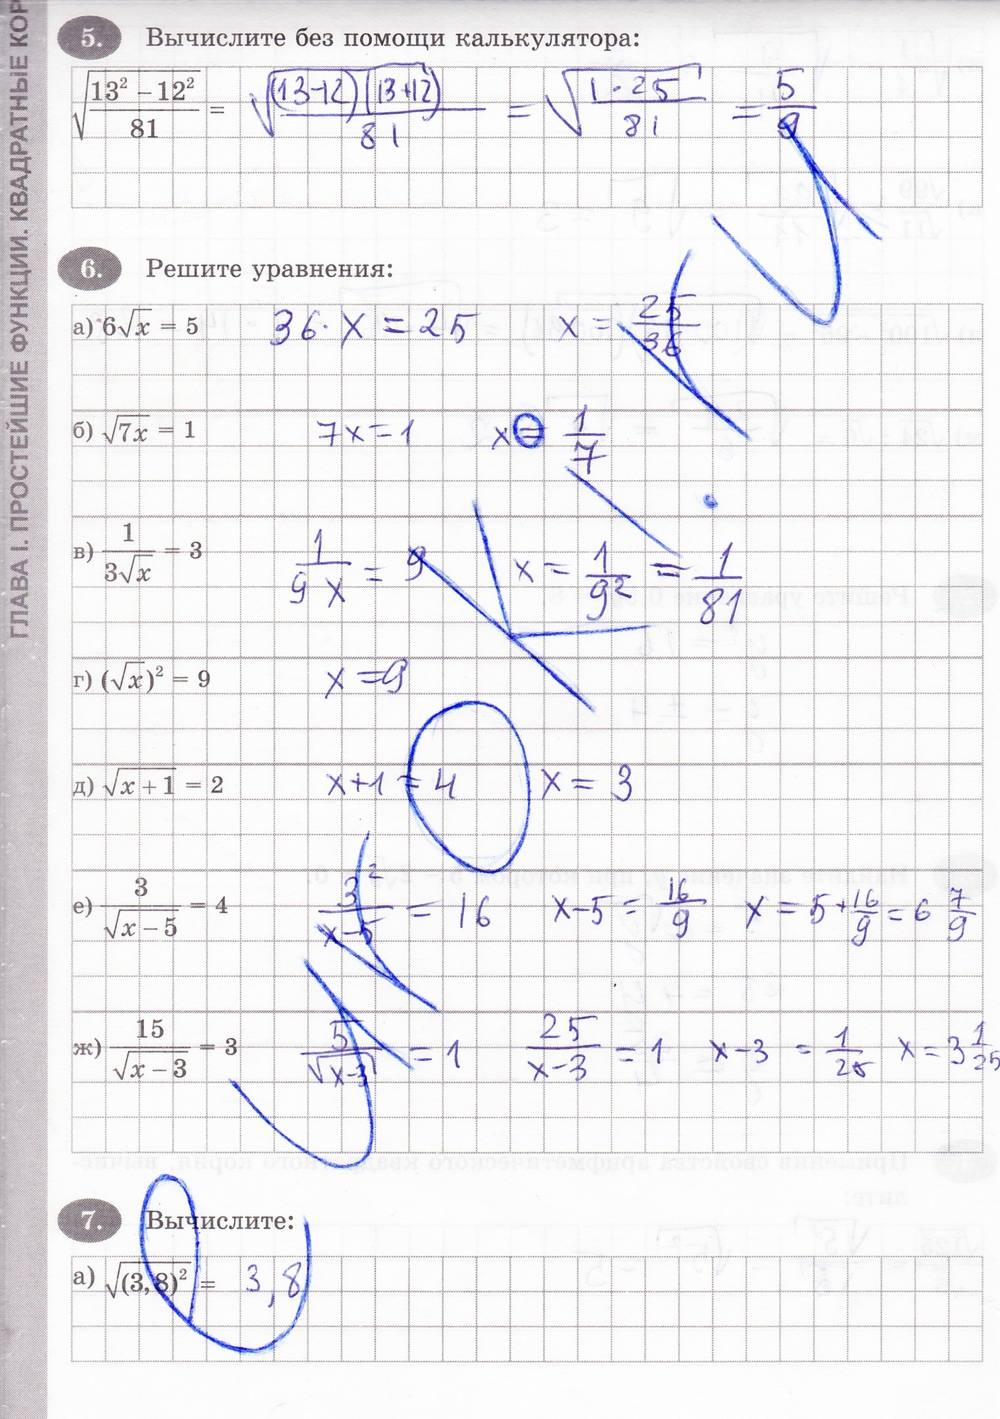 ГЛАВА I. ПРОСТЕЙШИЕ ФУНКЦИИ. КВАДРАТНЫЕ КОР
5. Вычислите без помощи калькулятора:
√((13² − 12²)/81) = √((13-12)(13+12)/81) = √(1·25/81) = 5/9
6. Решите уравнения:
а) 6√x = 5 36·x = 25 x = 25/36
б) √(7x) = 1 7x = 1 x = 1/7
в) 1/(3√x) = 3 1/(9x) = 9 x = 1/9² = 1/81
г) (√x)² = 9 x = 9
д) √(x + 1) = 2 x+1 = 4 x = 3
е) 3/√(x − 5) = 4 3²/(x-5) = 16 x-5 = 16/9 x = 5 + 16/9 = 6 7/9
ж) 15/√(x − 3) = 3 5/√(x-3) = 1 25/(x-3) = 1 x-3 = 1/25 x = 3 1/25
7. Вычислите:
а) √((3,8)²) = 3,8